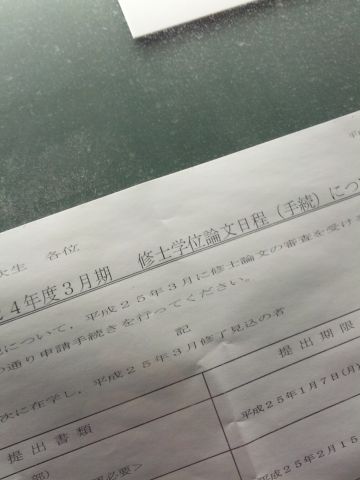 次生 各位
４年度３月期 修士学位論文日程（手続）につ
について，平成２５年３月に修士論文の審査を受け
通り申請手続きを行ってください。
記
次に在学し，平成２５年３月修了見込の者
提出書類 提出期限
平成２５年１月７日(月)
部）
必要＞
平成２５年２月１５